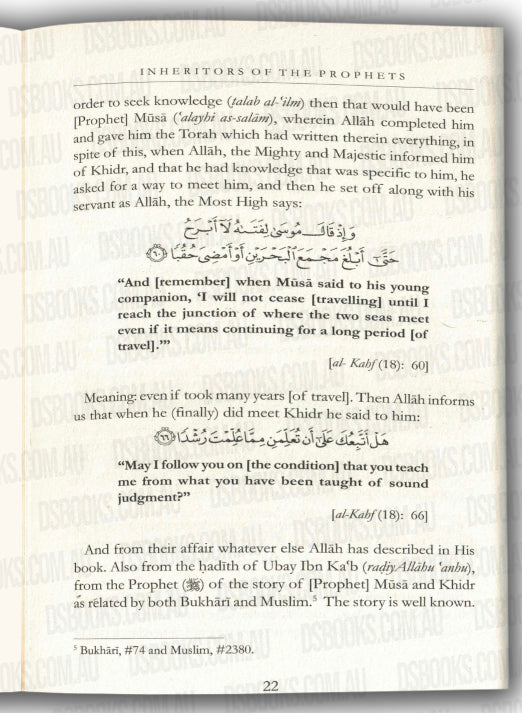 INHERITORS OF THE PROPHETS
order to seek knowledge (ṭalab al-‘ilm) then that would have been
[Prophet] Mūsā (‘alayhi as-salām), wherein Allāh completed him
and gave him the Torah which had written therein everything, in
spite of this, when Allāh, the Mighty and Majestic informed him
of Khidr, and that he had knowledge that was specific to him, he
asked for a way to meet him, and then he set off along with his
servant as Allāh, the Most High says:
وَإِذْ قَالَ مُوسَىٰ لِفَتَىٰهُ لَآ أَبْرَحُ
حَتَّىٰٓ أَبْلُغَ مَجْمَعَ ٱلْبَحْرَيْنِ أَوْ أَمْضِىَ حُقُبًا ٦٠
“And [remember] when Mūsā said to his young
companion, ‘I will not cease [travelling] until I
reach the junction of where the two seas meet
even if it means continuing for a long period [of
travel].’”
[al- Kahf (18): 60]
Meaning: even if took many years [of travel]. Then Allāh informs
us that when he (finally) did meet Khidr he said to him:
هَلْ أَتَّبِعُكَ عَلَىٰٓ أَن تُعَلِّمَنِ مِمَّا عُلِّمْتَ رُشْدًا ٦٦
“May I follow you on [the condition] that you teach
me from what you have been taught of sound
judgment?”
[al-Kahf (18): 66]
And from their affair whatever else Allāh has described in His
book. Also from the ḥadīth of Ubay Ibn Ka‘b (raḍiyAllāhu ‘anhu),
from the Prophet (ﷺ) of the story of [Prophet] Mūsā and Khidr
as related by both Bukhārī and Muslim.⁵ The story is well known.
⁵ Bukhārī, #74 and Muslim, #2380.
22
DSBOOKS.COM.AU